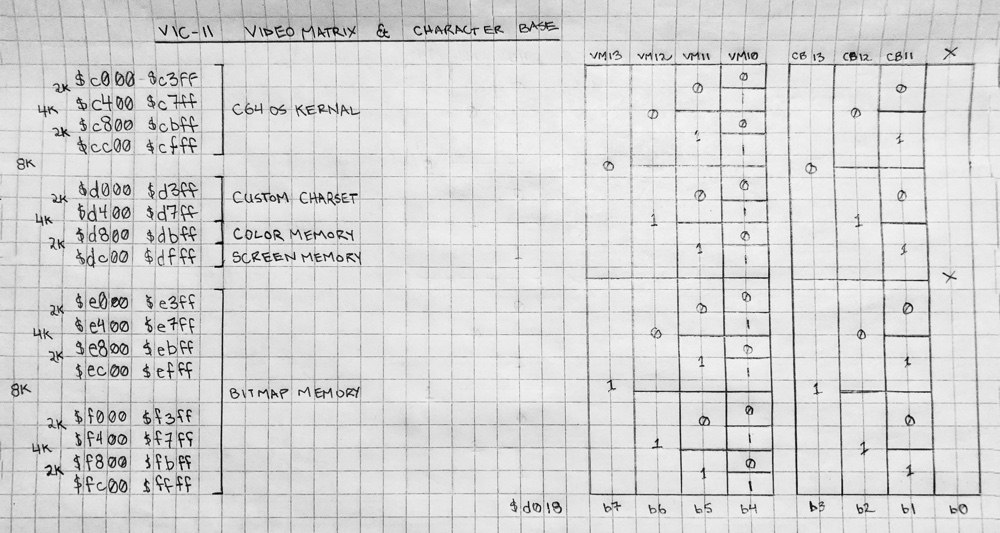 VIC-II VIDEO MATRIX & CHARACTER BASE
VM13 VM12 VM11 VM10 CB13 CB12 CB11 X
2K $c000 $c3ff
4K $c400 $c7ff
2K $c800 $cbff
$cc00 $cfff
C64 OS KERNAL
8K
$d000 $d3ff
4K $d400 $d7ff
2K $d800 $dbff
$dc00 $dfff
CUSTOM CHARSET
COLOR MEMORY
SCREEN MEMORY
2K $e000 $e3ff
4K $e400 $e7ff
2K $e800 $ebff
$ec00 $efff
8K
BITMAP MEMORY
2K $f000 $f3ff
4K $f400 $f7ff
2K $f800 $fbff
$fc00 $ffff
0 1
0 1 0 1
0 1 0 1 0 1 0 1
0 1 0 1 0 1 0 1 0 1 0 1 0 1 0 1
0 1
0 1 0 1
0 1 0 1 0 1 0 1
X
$d018 b7 b6 b5 b4 b3 b2 b1 b0